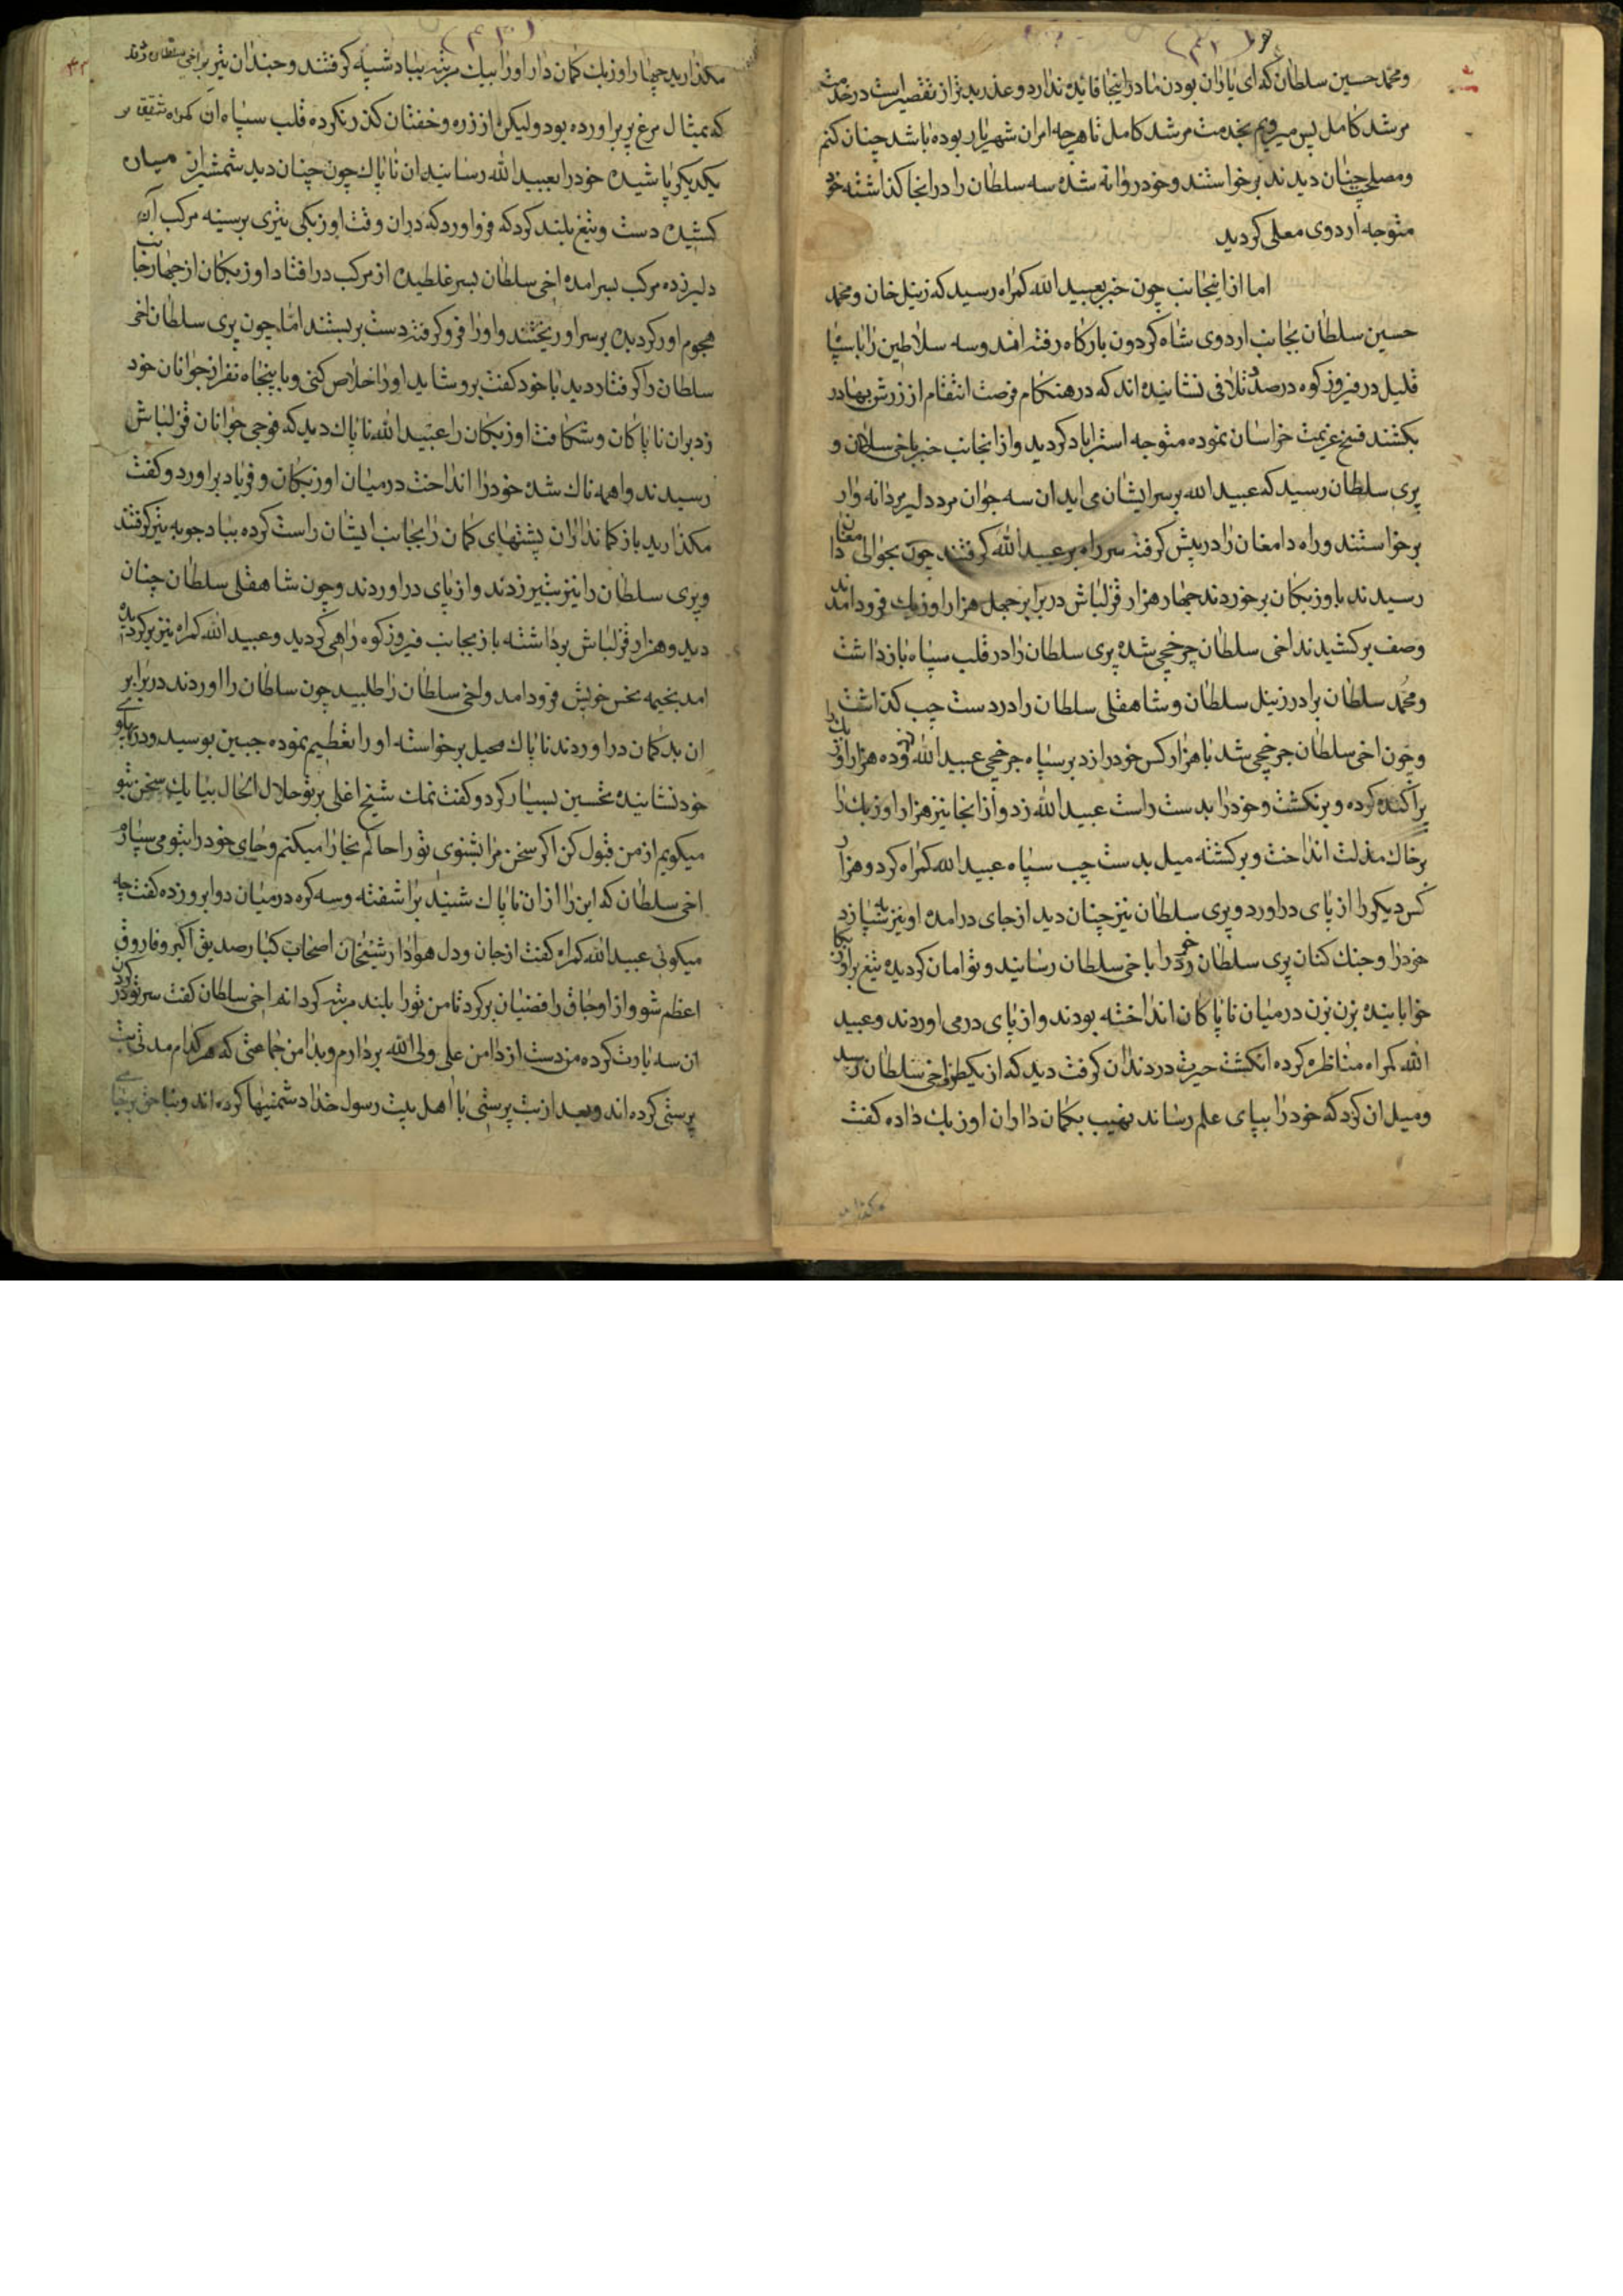 ومحمد حسین سلطان که ای یاران بودن ما در اینجا فائیده ندارد و عذر بدتر از تقصیر است در خدمت
مرشد کامل پس میرویم بخدمت مرشد کامل تا هرچه امران شهریار بوده باشد چنان کنم
ومصلحت چنان دیدند برخواستند وخود روانه شده سه سلطان را در انجا کذاشته خود
متوجه اردوی معلی کردید
اما از اینجانب چون خبر بعبید الله کمراه رسید که زینل خان ومحمد
حسین سلطان بجانب اردوی شاه کردون بارکاه رفته اند وسه سلاطین را با سپاه
قلیل در فیروز کوه در صدد تلافی نشانیده اند که در هنکام فرصت انتقام از زرش بهادر
بکشند فسخ عزیمت خراسان نموده متوجه استراباد کردید و از انجانب خبر باخی سلطان و
پری سلطان رسید که عبید الله بر سر ایشان می اید ان سه جوان مرد دلیر مردانه وار
برخواستند وراه دامغان را در پیش کرفته سر راه بر عبید الله کرفتند چون بحوالی دامغان
رسیدند باوزبکان برخوردند چهار هزار قزلباش در برابر چهل هزار اوزبک فرود امدند
وصف برکشیدند اخی سلطان چرخچی شده پری سلطان را در قلب سپاه بازداشت
ومحمد سلطان برادر زینل سلطان وشاهقلی سلطان را در دست چپ کذاشت
وچون اخی سلطان چرخچی شد با هزار کس خود را زد بر سپاه چرخچی عبید الله وده هزار اوزبک را
پراکنده کرده و برنکشت وخود را بدست راست عبید الله زد و از انجا نیز هزار اوزبک را
بر خاک مذلت انداخت وبرکشته میل بدست چپ سپاه عبید الله کمراه کرد وهزار
کس دیکر را از پای دراورد و پری سلطان نیز چنان دید از جای درامده او نیز بسپاه زد
خود را وجنک کنان پری سلطان خود را باخی سلطان رسانید وتوامان کردیده تیغ براوزبکان
خوابانیده بزن بزن در میان ناپاکان انداخته بودند و از پای در می اوردند وعبید
الله کمراه مناظره کرده انکشت حیرت در دندان کرفت دید که از یکطرف اخی سلطان رسید
ومیل ان کرد که خود را بپای علم رساند نهیب بکمان داران اوزبک داده کفت
مکذارید چهار اوزبک کمان دار او را بیک مرتبه بباد شیبه کرفتند وچندان تیر بر اخی سلطان زدند
که بمثال مرغ پر براورده بود ولیکن از زره وخفتان کذر نکرده قلب سپاه ان کمراه شقی بر
یکدیکر پاشیده خود را بعبید الله رسانید ان ناپاک چون چنان دید شمشیر از میان
کشیده دست وتیغ بلند کرد که فرو اورد که در ان وقت اوزبکی تیری بر سینه مرکب آن
دلیر زده مرکب بسر امده اخی سلطان بسر غلطیده از مرکب در افتاد اوزبکان از چهار جانب
هجوم اور کردیده بر سر او ریختند و او را فرو کرفته دست بربستند اما چون پری سلطان اخی
سلطان را کرفتار دید با خود کفت برو شاید او را خلاص کنی وبا پنجاه نفر از جوانان خود
زد بران ناپاکان وشکافت اوزبکان را عبید الله ناپاک دید که فوجی جوانان قزلباش
رسیدند واهمه ناک شده خود را انداخت در میان اوزبکان وفریاد براورد وکفت
مکذارید باز کمانداران پشتهای کمان را بجانب ایشان راست کرده بباد چوبه تیر کرفتند
وپری سلطان را نیز بتیر زدند و از پای دراوردند وچون شاهقلی سلطان چنان
دید وهزار قزلباش برداشته باز بجانب فیروز کوه راهی کردید وعبید الله کمراه نیز برکردید
امد بخیمه نحس خویش فرود امد و اخی سلطان را طلبید چون سلطان را اوردند در برابر
ان بد کمان دراوردند ناپاک محیل برخواسته او را تعظیم نموده جبین بوسید و در پهلوی
خود نشانیده تحسین بسیار کرد وکفت نمک شیخ اغلی بر تو حلال الحال بیا یک سخن بتو
میکویم از من قبول کن اکر سخن مرا بشنوی تو را حاکم بخارا میکنم وجای خود را بتو می سپارم
اخی سلطان که این را از ان ناپاک شنید براشفته وسه کره در میان دو ابرو زده کفت چه
میکوئی عبید الله کمراه کفت از جان ودل هوادار شیخان اصحاب کبار صدیق اکبر وفاروق
اعظم شو و از اوجاق رافضیان برکرد تا من تو را بلند مرتبه کردانم اخی سلطان کفت سر تو در کون
ان سه یارت کرده من دست از دامن علی ولی الله بردارم وبدامن جماعتی که هر کدام مدتی بت
پرستی کرده اند وبعد از بت پرستی با اهل بیت رسول خدا دشمنیها کرده اند وبناحق بر جای